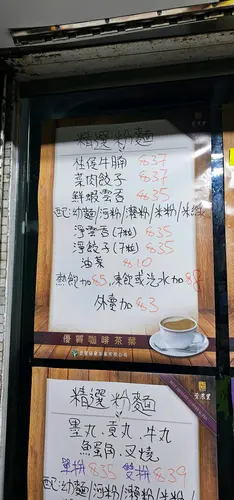 精選粉麵
佳保牛腩 $37
菜肉餃子 $37
鮮蝦雲吞 $35
配:幼麵/河粉/瀨粉/米粉/米線
淨雲吞(7粒) $35
淨餃子(7粒) $35
油菜 $10
熱飲加$5,凍飲或汽水加$8
外賣加$3
優質咖啡茶葉
精選粉麵
墨丸、貢丸、牛丸
魚蛋角、叉燒
單拼$35 雙拼$39
配:幼麵/河粉/瀨粉/米粉/